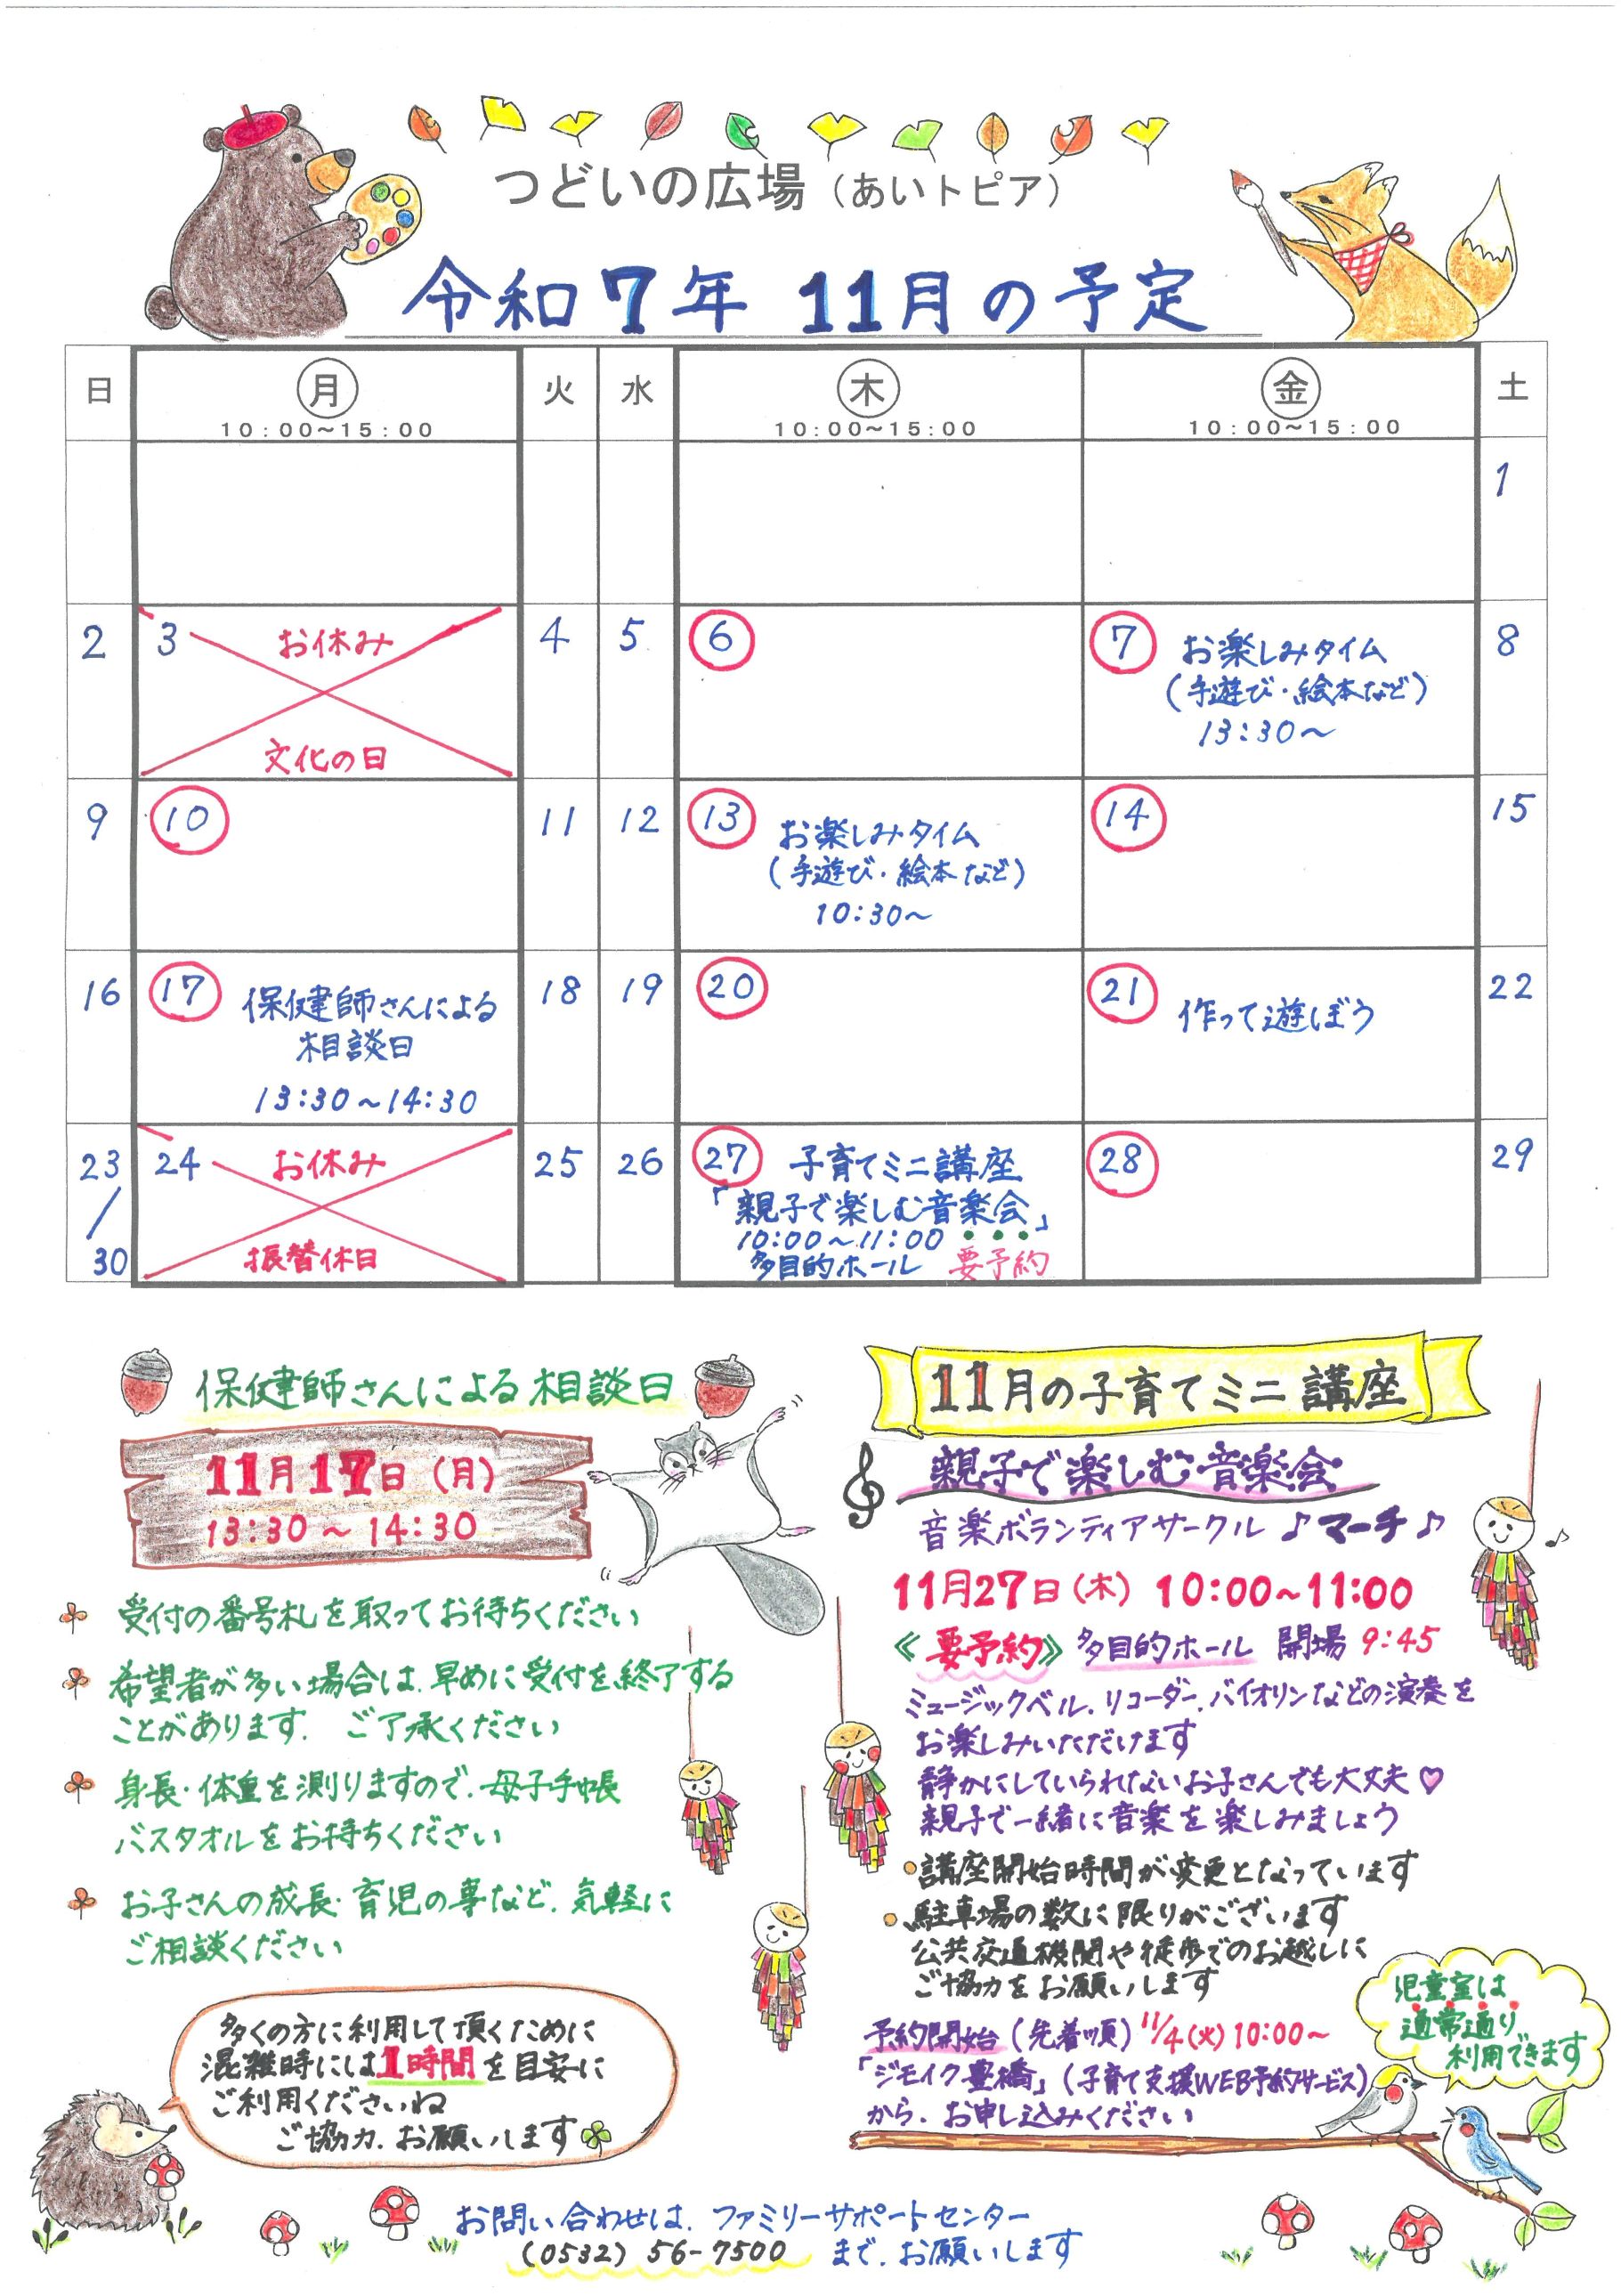 つどいの広場（あいトピア）
令和7年 11月の予定
日 月 火 水 木 金 土
10:00~15:00 10:00~15:00 10:00~15:00
1
2 3 お休み 4 5 6 7 お楽しみタイム 8
(手遊び・絵本など)
13:30~
文化の日
9 10 11 12 13 お楽しみタイム 14 15
(手遊び・絵本など)
10:30~
16 17 保健師さんによる 18 19 20 21 作って遊ぼう 22
相談日
13:30~14:30
23/30 24 お休み 25 26 27 子育てミニ講座 28 29
「親子で楽しむ音楽会」
10:00~11:00
振替休日 多目的ホール 要予約
保健師さんによる相談日
11月17日(月)
13:30~14:30
受付の番号札を取ってお待ちください
希望者が多い場合は、早めに受付を終了する
ことがあります. ご了承ください
身長・体重を測りますので、母子手帳
バスタオルをお持ちください
お子さんの成長・育児の事など、気軽に
ご相談ください
多くの方に利用して頂くために
混雑時には1時間を目安に
ご利用くださいね
ご協力、お願いします
11月の子育てミニ講座
親子で楽しむ音楽会
音楽ボランティアサークル ♪マーチ♪
11月27日(木) 10:00~11:00
《要予約》 多目的ホール 開場 9:45
ミュージックベル、リコーダー、バイオリンなどの演奏を
お楽しみいただけます
静かにしていられないお子さんでも大丈夫♡
親子で一緒に音楽を楽しみましょう
・講座開始時間が変更となっています
・駐車場の数に限りがございます
公共交通機関や徒歩でのお越しに
ご協力をお願いします
予約開始(先着順) 11/4(火) 10:00~
「ジモイク豊橋」(子育て支援WEB予約サービス)
から、お申し込みください
児童室は
通常通り
利用できます
お問い合わせは、ファミリーサポートセンター
(0532) 56-7500 まで、お願いします